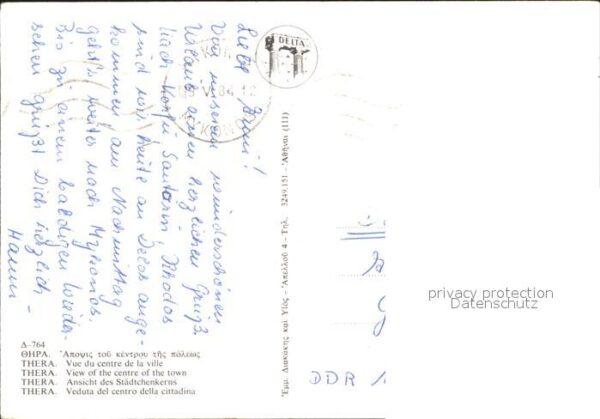 Liebe
Von unserem wunderschönen
Urlaub einen herzlichen Gruß.
Nach Korfu, Santorin, Rhodos
sind wir heute an Delos ange-
kommen am Nachmittag
geht's weiter nach Mykonos.
Bis zu einem baldigen Wieder-
sehen grüßt Dich herzlich
Hanni -
DELTA
84 12
Ἐμμ. Διακάκης καὶ Υἱός - Ἀπελλοῦ 4 - Τηλ. 3249.151 - Ἀθῆναι (111)
privacy protection
Datenschutz
DDR
Δ-764
ΘΗΡΑ. Ἄποψις τοῦ κέντρου τῆς πόλεως
THERA. Vue du centre de la ville
THERA. View of the centre of the town
THERA. Ansicht des Städtchenkerns
THERA. Veduta del centro della cittadina